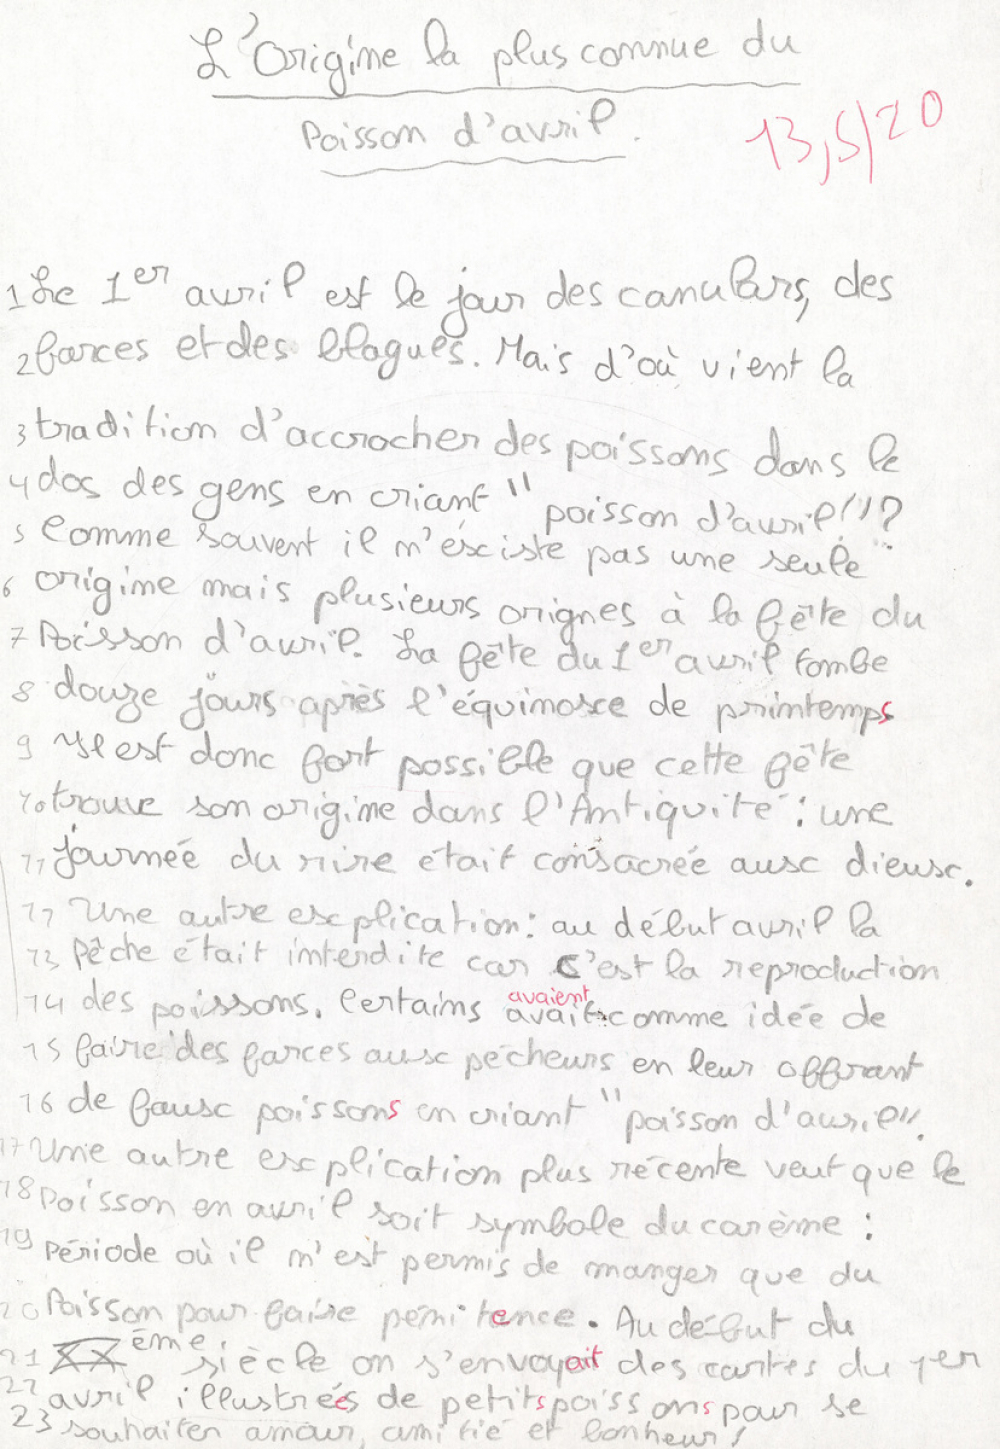 L'Origine la plus connue du
Poisson d'avril.
13,5/20
1 Le 1er avril est le jour des canulars, des
2 farces et des blagues. Mais d'où vient la
3 tradition d'accrocher des poissons dans le
4 dos des gens en criant "poisson d'avril!"?
5 Comme souvent il n'éxiste pas une seule
6 origine mais plusieurs orignes à la fête du
7 Poisson d'avril. La fête du 1er avril tombe
8 douze jours après l'équinoxe de printemps
9 Il est donc fort possible que cette fête
10 trouve son origine dans l'Antiquité : une
11 journée du rire était consacrée aux dieux.
12 Une autre explication : au début avril la
13 Pêche était interdite car c'est la reproduction
avaient
14 des poissons. Certains avait comme idée de
15 faire des farces aux pécheurs en leur offrant
16 de faux poissons en criant "poisson d'avril".
17 Une autre explication plus récente veut que le
18 poisson en avril soit symbole du carème :
19 Période où il n'est permis de manger que du
20 Poisson pour faire pénitence. Au début du
21 XXème siècle on s'envoyait des cartes du 1er
22 avril illustrées de petits poissons pour se
23 souhaiter amour, amitié et bonheur!